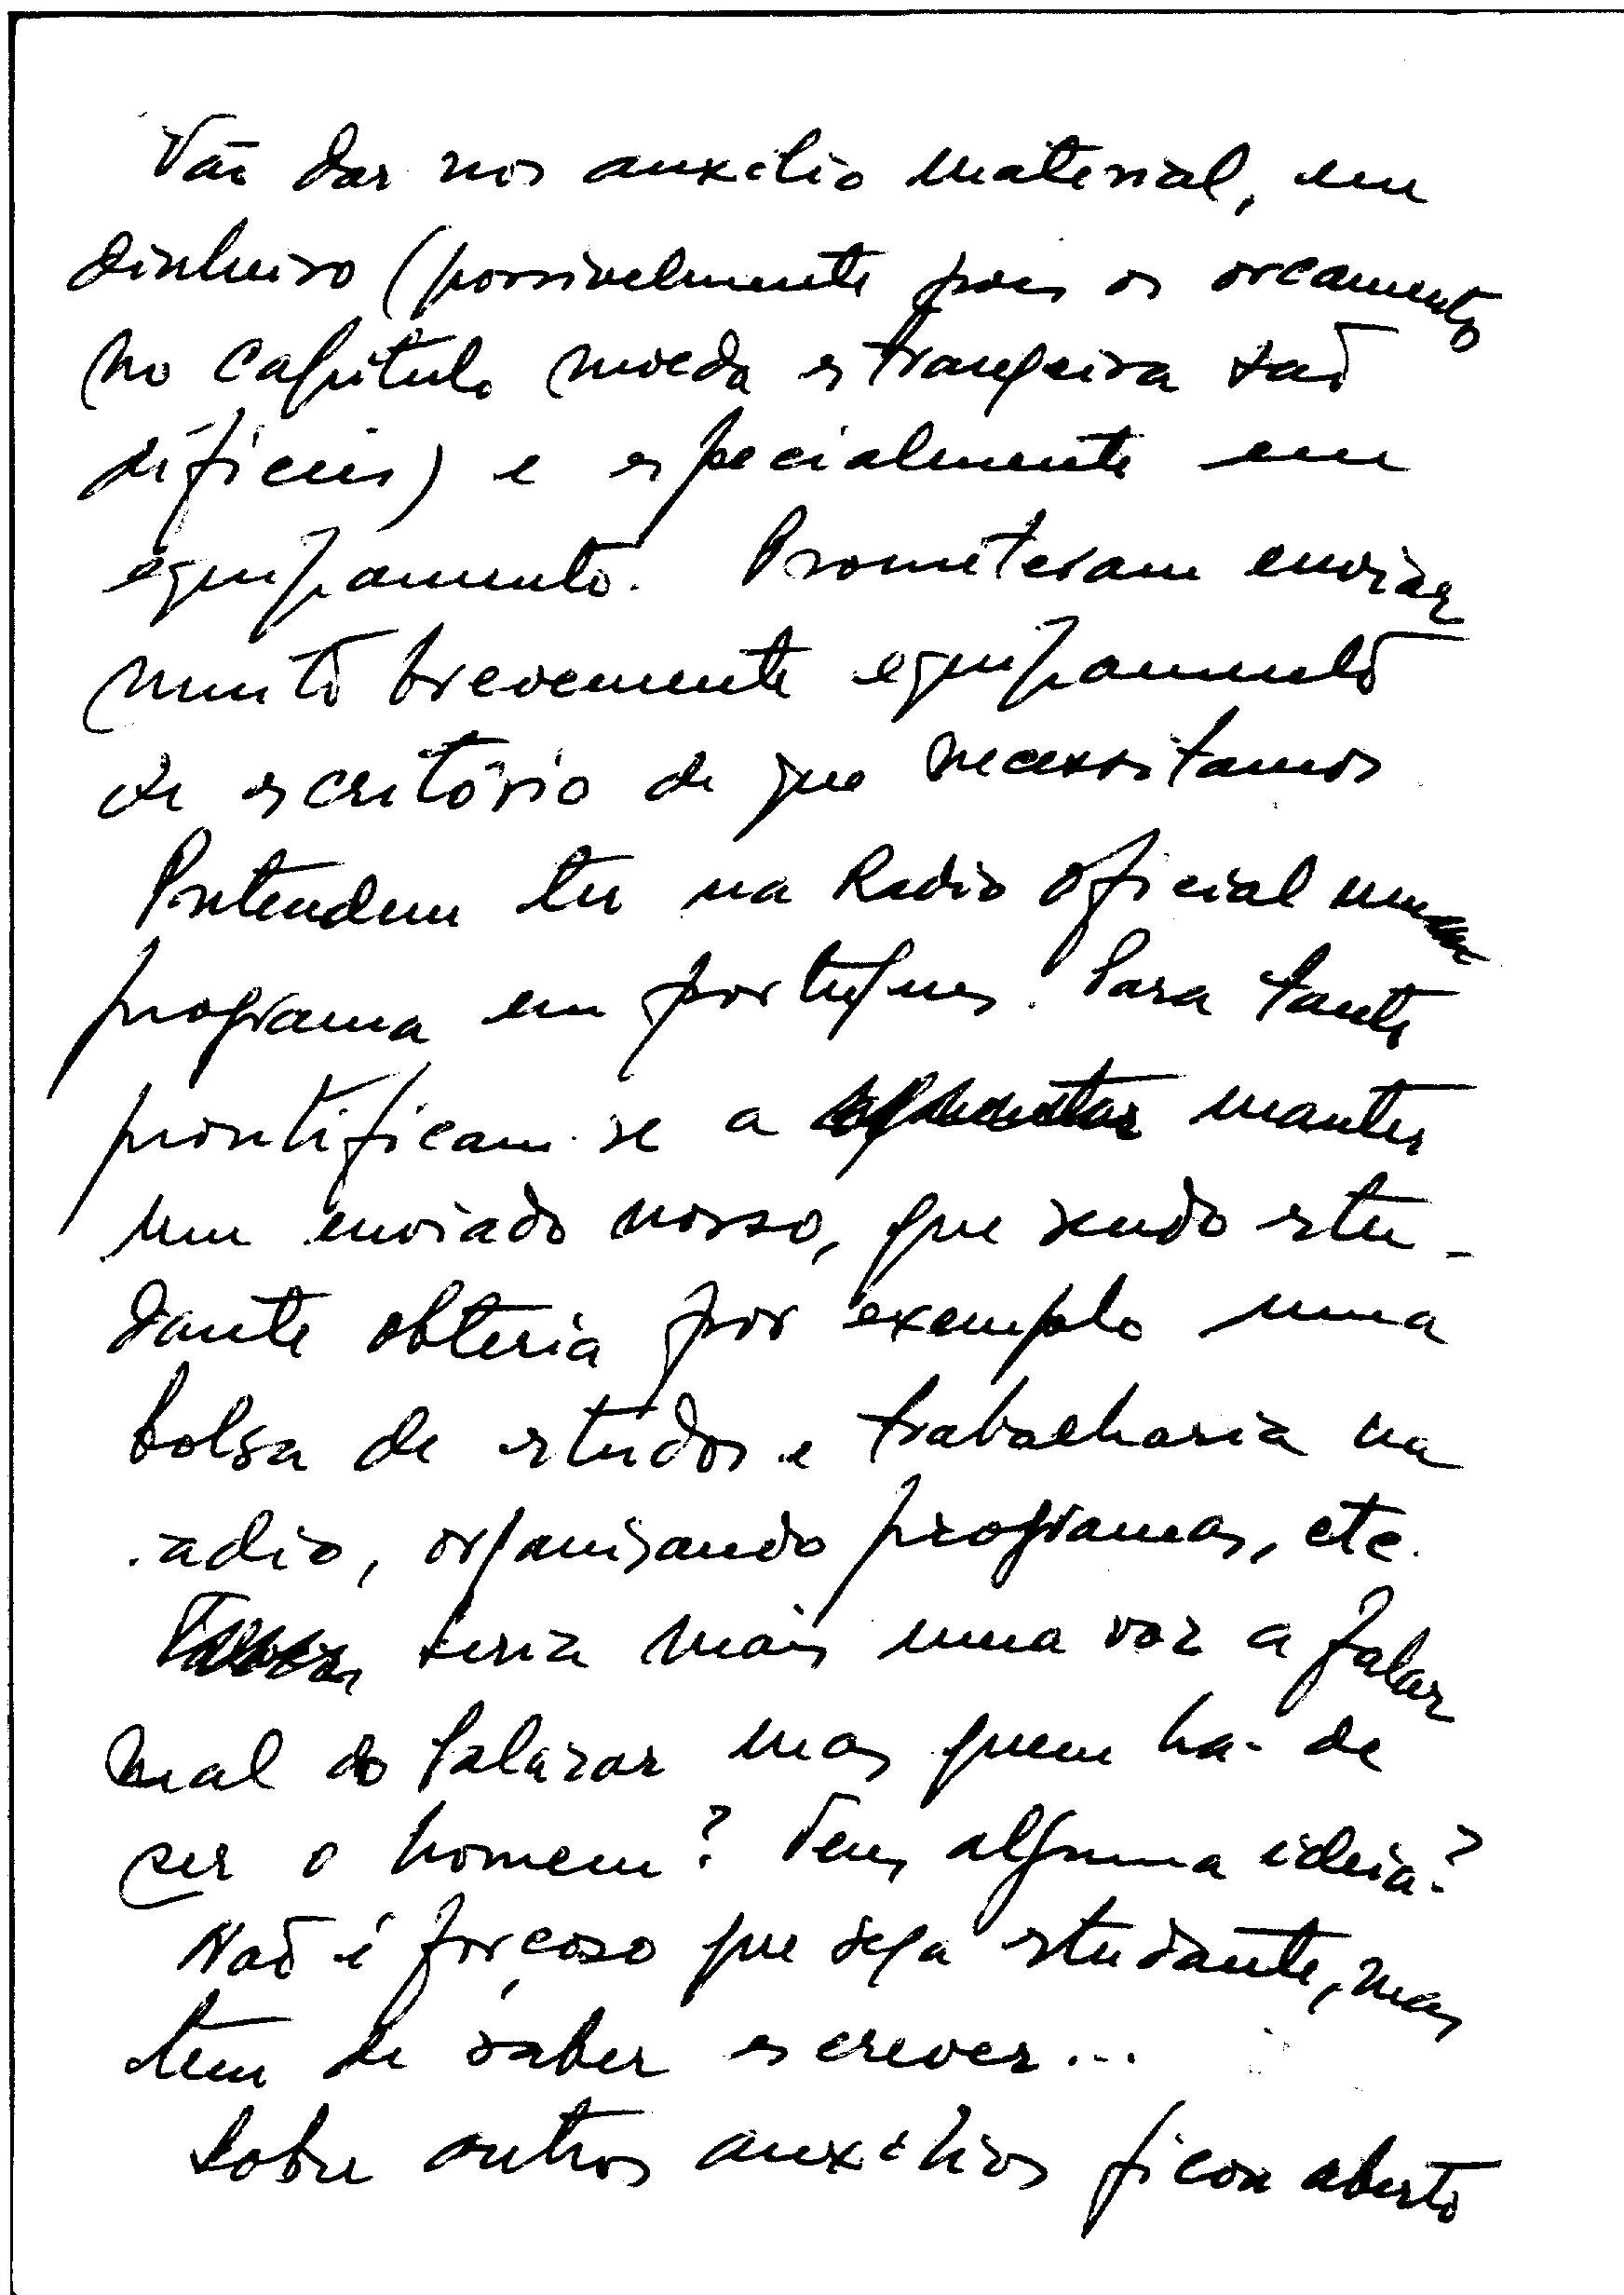 Vão dar nos auxílio material, em
dinheiro (possivelmente pois os orçamentos
no capítulo moeda estrangeira são
difíceis) e especialmente em
equipamento. Prometeram enviar
muito brevemente equipamento
de escritório de que necessitamos
Pretendem ter na Radio Oficial um
programa em português. Para tanto
prontificam-se a manter
um enviado nosso, que sendo estu-
dante obteria por exemplo uma
bolsa de estudos e trabalharia na
radio, organisando programas, etc.
seria mais uma voz a falar
mal do Salazar mas quem ha-de
ser o homem? Tens alguma ideia?
Não é forçoso que seja estudante, mas
tem de saber escrever...
Sobre outros auxílios ficou aberto